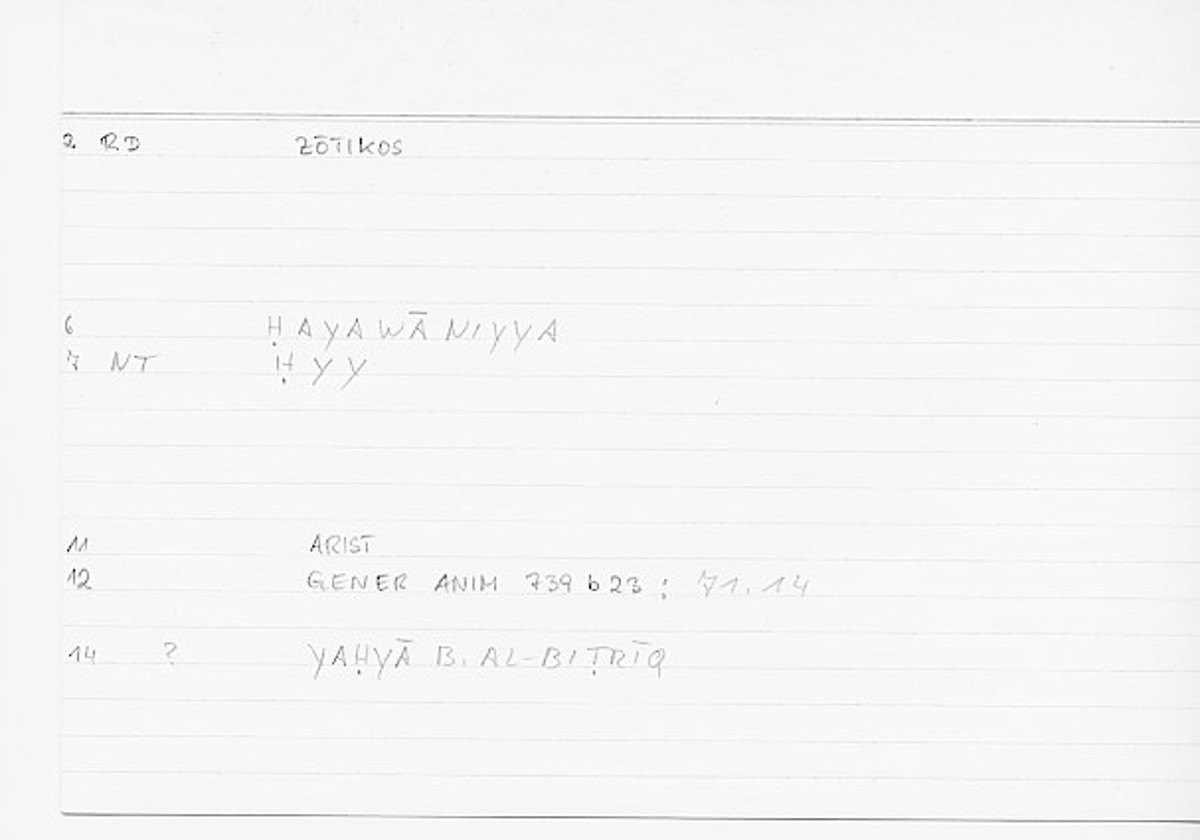 2 RD ZŌTIKOS
6 ḤAYAWĀNIYYA
7 NT ḤYY
11 ARIST
12 GENER ANIM 739 b 23 : 71.14
14 ? YAḤYĀ B. AL-BIṬRĪQ